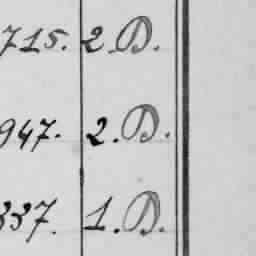 715. 2 D.
947. 2. D.
337. 1. D.